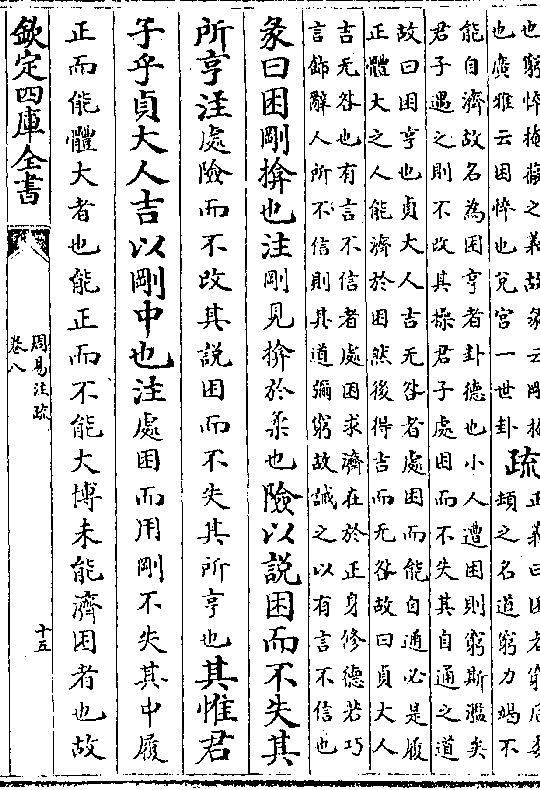 也窮悴掩蔽之義故彖云剛揜
也廣雅云困悴也兌宮一世卦
疏
正義曰困者窮厄委
頓之名道窮力竭不
能自濟故名為困亨者卦德也小人遭困則窮斯濫矣
君子遇之則不改其操君子處困而不失其自通之道
故曰困亨也貞大人吉无咎者處困而能自通必是履
正體大之人能濟於困然後得吉而无咎故曰貞大人
吉无咎也有言不信者處困求濟在於正身修德若巧
言飾辭人所不信則其道彌窮故誡之以有言不信也
彖曰困剛揜也注剛見揜於柔也險以說困而不失其
所亨注處險而不改其說困而不失其所亨也其惟君
子乎貞大人吉以剛中也注處困而用剛不失其中履
正而能體大者也能正而不能大博未能濟困者也故
欽定四庫全書
周易注疏
卷八
十五